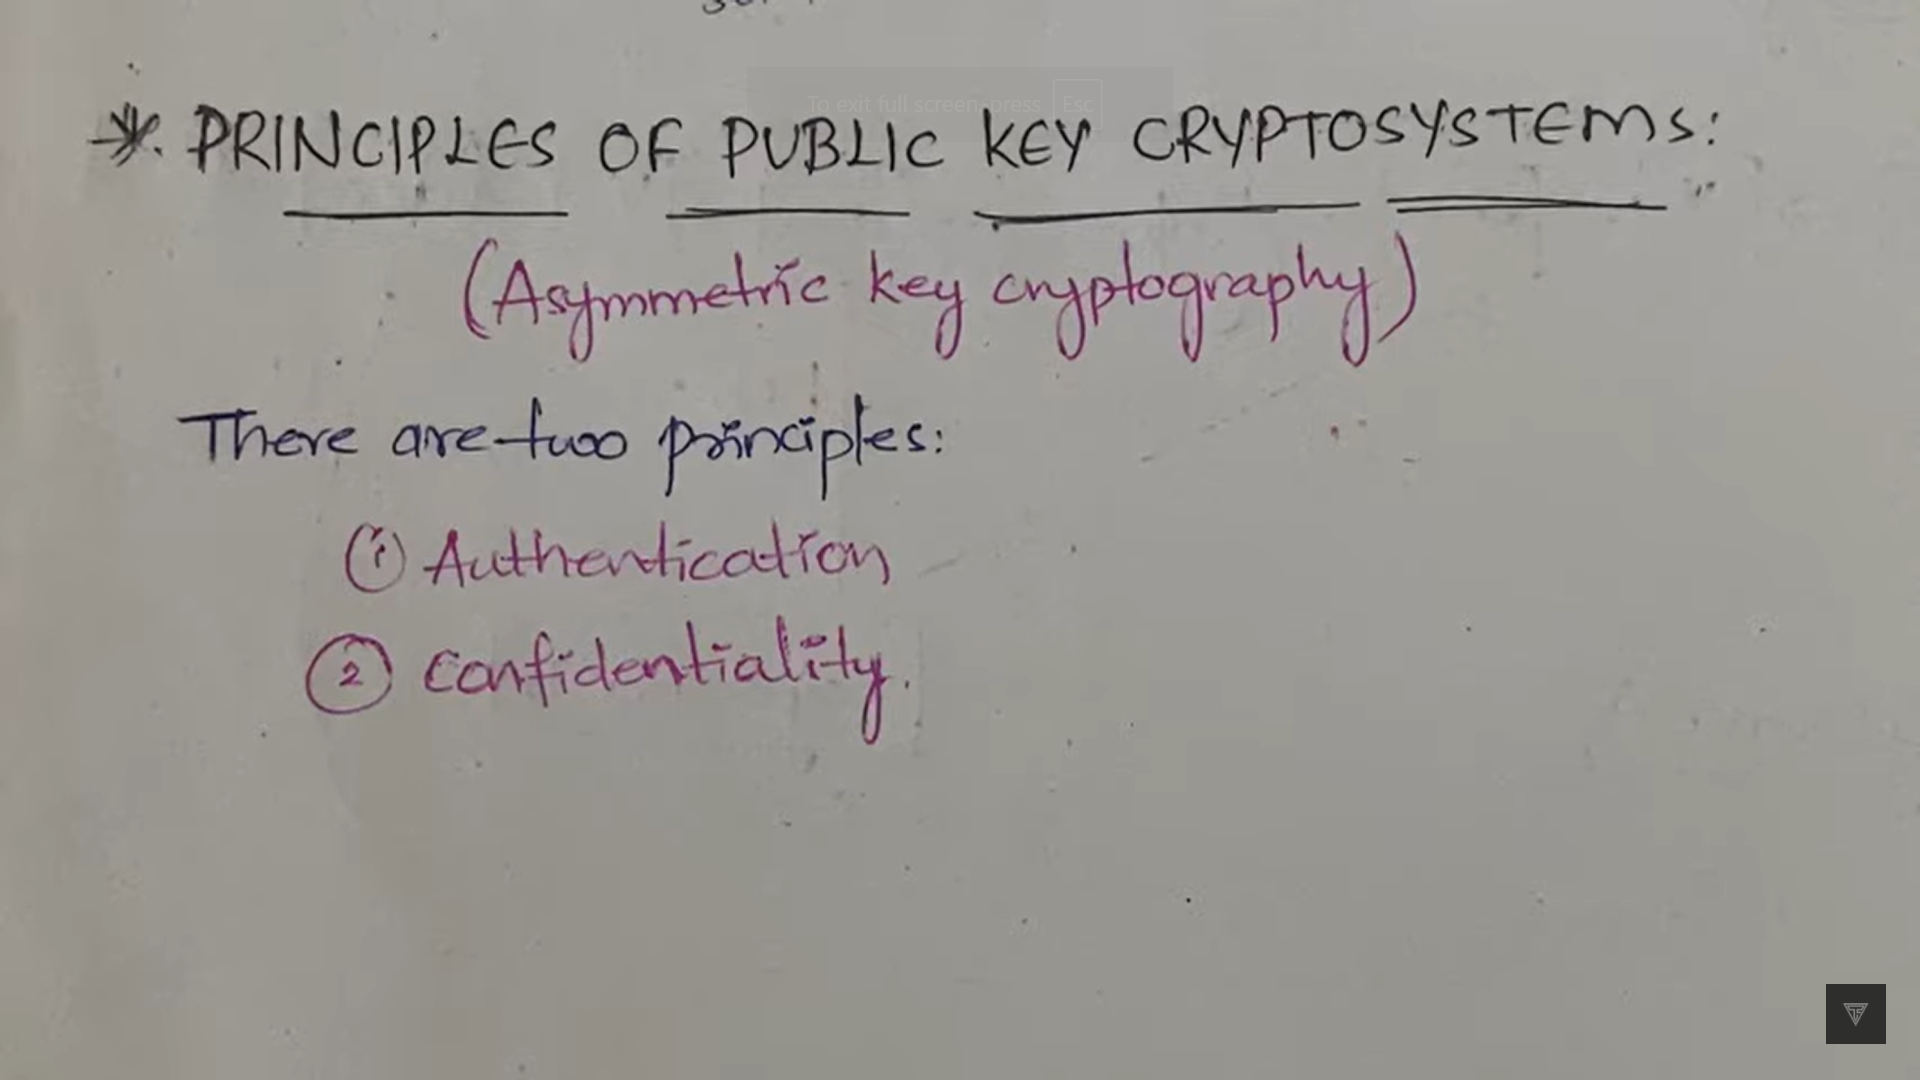 To exit full screen, press Esc
* PRINCIPLES OF PUBLIC KEY CRYPTOSYSTEMS:
(Asymmetric key cryptography)
There are two principles:
① Authentication
② Confidentiality.